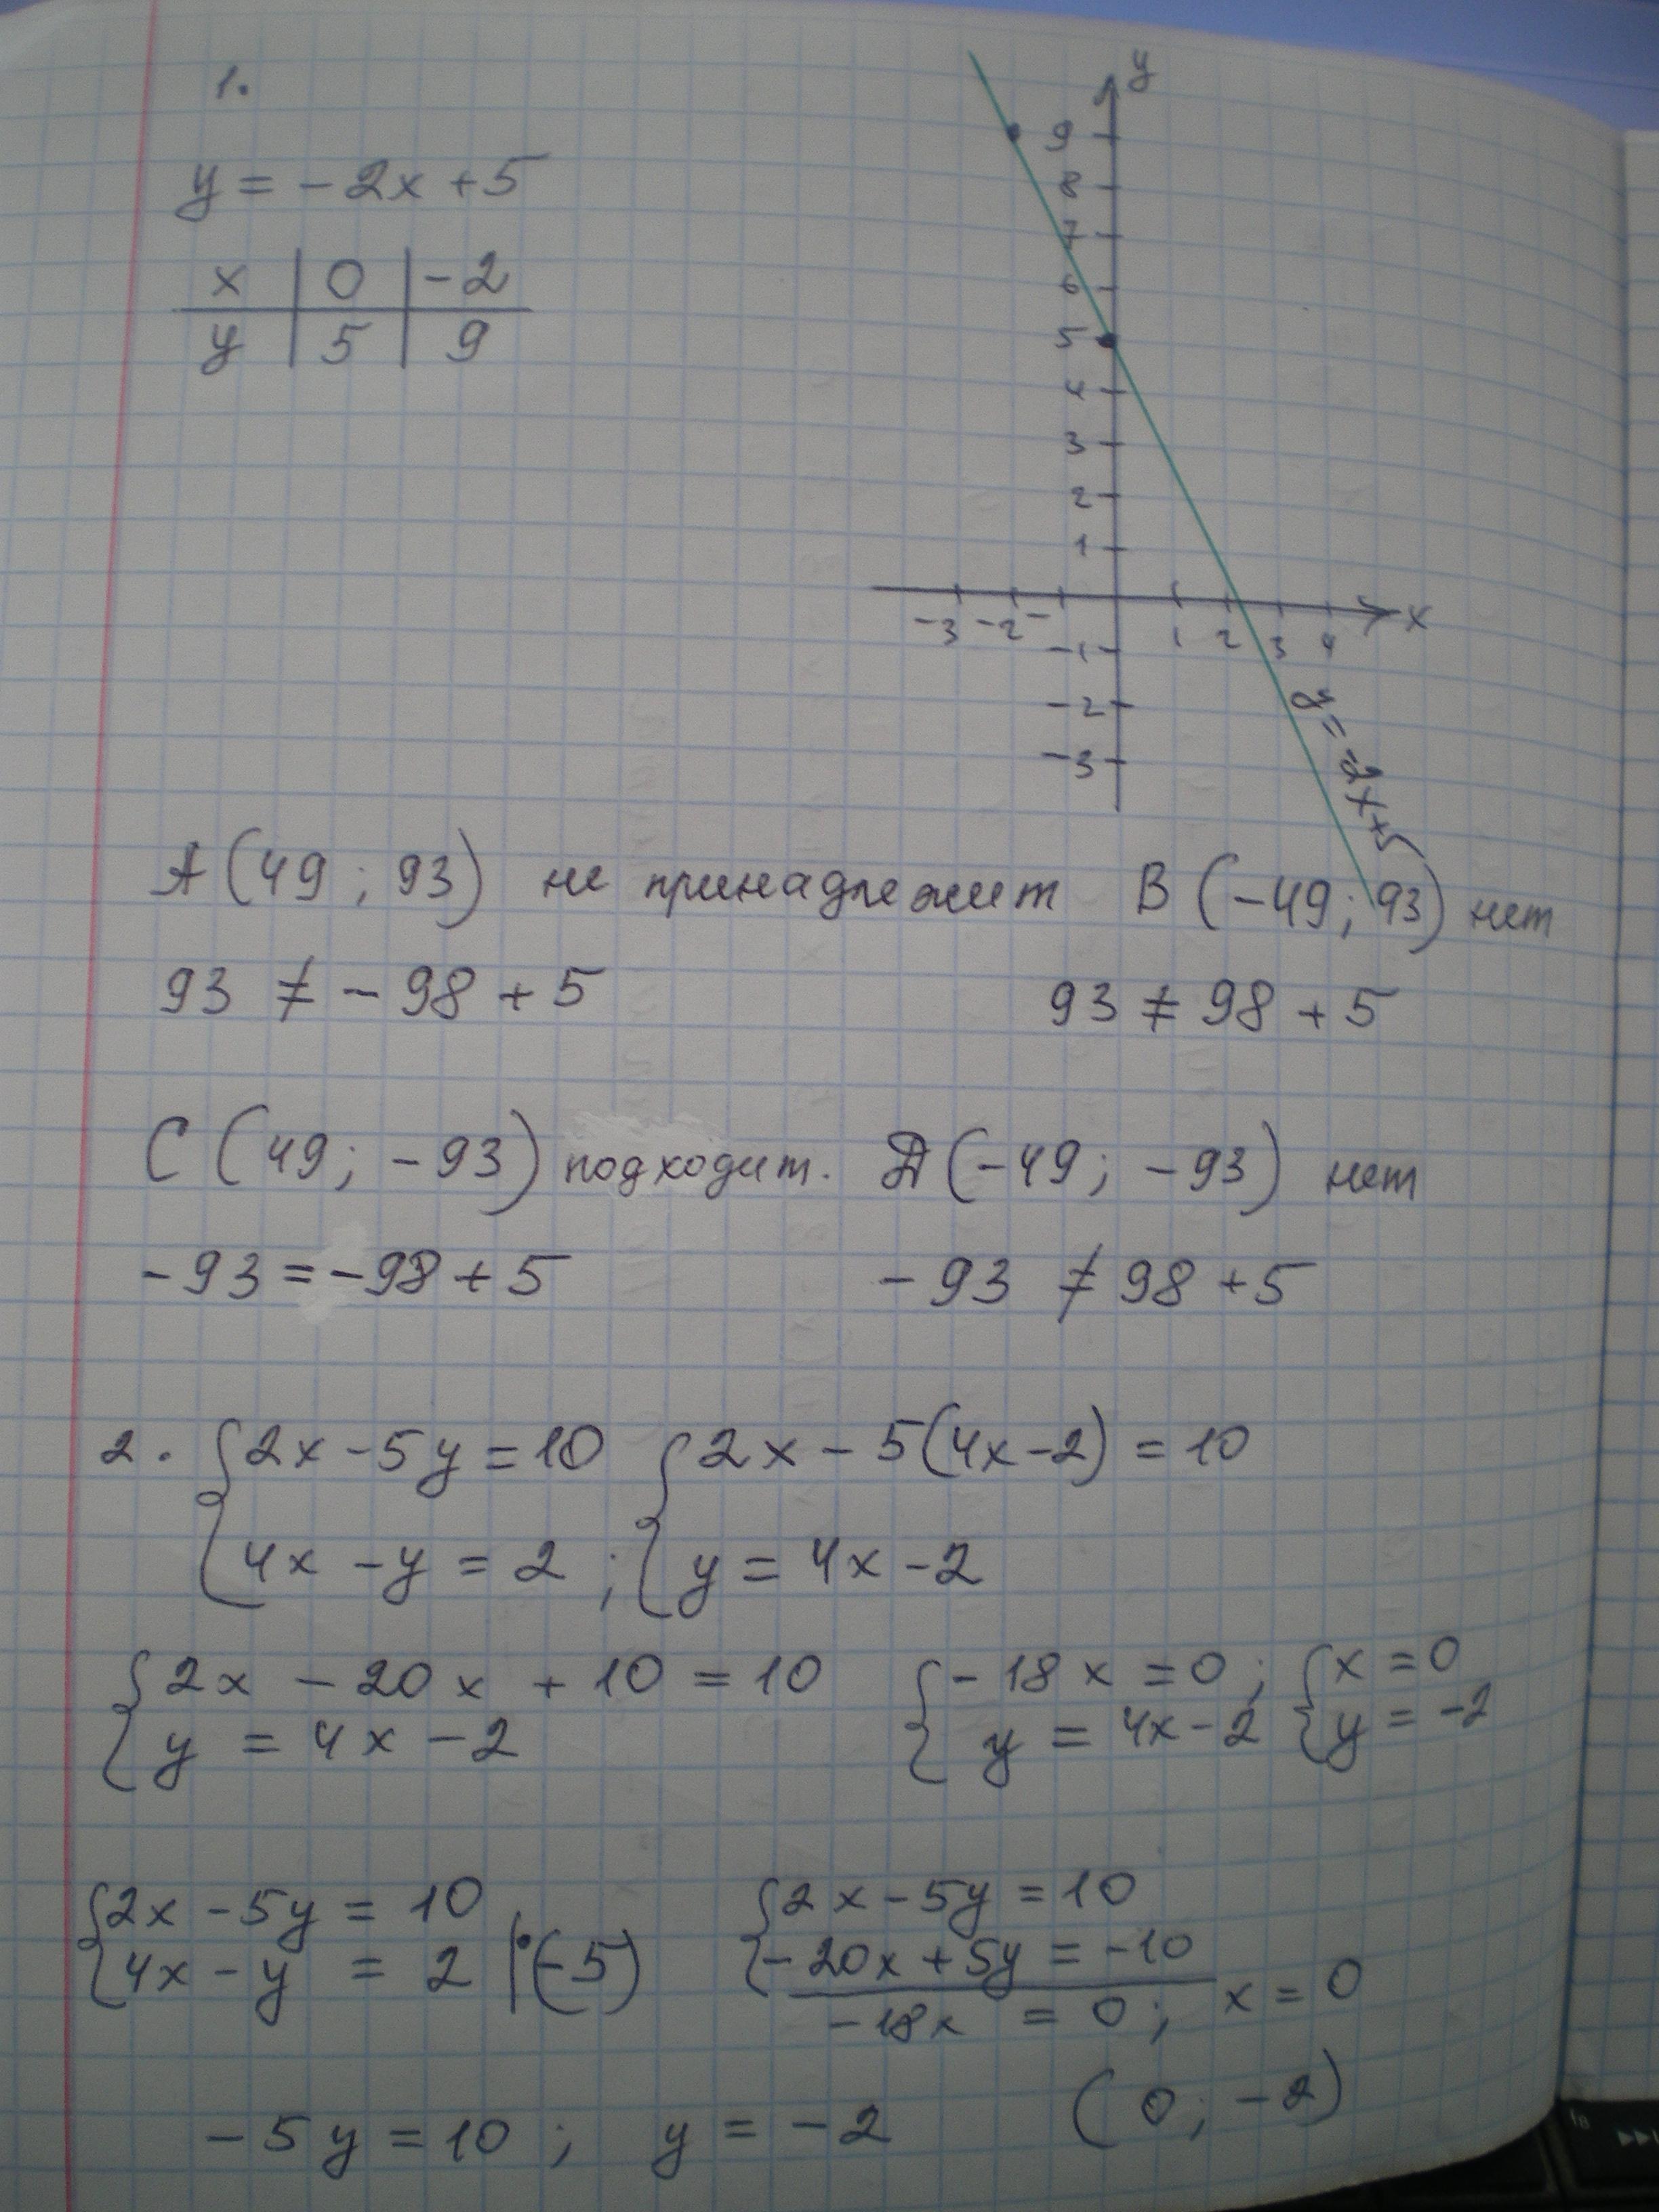 1.
y = -2x + 5
x | 0 | -2
y | 5 | 9
y
9
8
7
6
5
4
3
2
1
-3 -2 - 1 2 3 4 x
-1
-2
-3
y = -2x+5
A (49 ; 93) не принадлежит B (-49 ; 93) нет
93 ≠ - 98 + 5 93 ≠ 98 + 5
C (49 ; -93) подходит. Д (-49 ; -93) нет
-93 = -98 + 5 -93 ≠ 98 + 5
2. { 2x - 5y = 10 { 2x - 5(4x-2) = 10
4x - y = 2 ; y = 4x - 2
{ 2x - 20x + 10 = 10 { -18x = 0 ; { x = 0
y = 4x - 2 y = 4x - 2 y = -2
{ 2x - 5y = 10 { 2x - 5y = 10
4x - y = 2 |·(-5) -20x + 5y = -10
-18x = 0 ; x = 0
-5y = 10 ; y = -2 (0 ; -2)